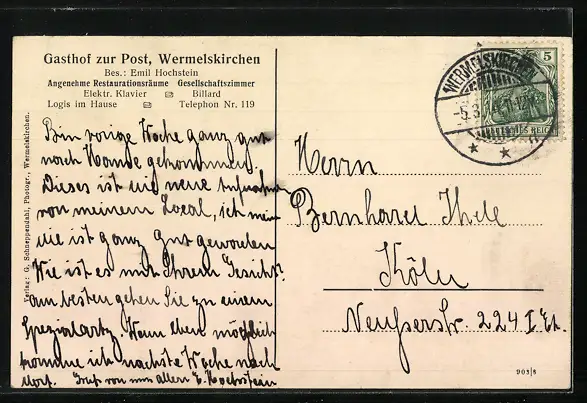 Gasthof zur Post, Wermelskirchen
Bes.: Emil Hochstein
Angenehme Restaurationsräume Gesellschaftszimmer
Elektr. Klavier Billard
Logis im Hause Telephon Nr. 119
Bin vorige Woche ganz gut
nach Hause gekommen.
Dieses ist eine neue Aufnahme
von meinem Local, ich meine
sie ist ganz gut geworden
Wie ist es mit Ihrem Gesicht?
am besten gehen Sie zu einem
Spezialartz. Wenn eben möglich
komme ich nächste Woche nach
dort. Gruß von uns allen E. Hochstein
Verlag: G. Schneppendahl, Photogr., Wermelskirchen.
WERMELSKIRCHEN
5
-5.3. 11-12
DEUTSCHES REICH
Herrn
Bernhard Thele
Köln
Neußerstr. 224 I Et.
903/8